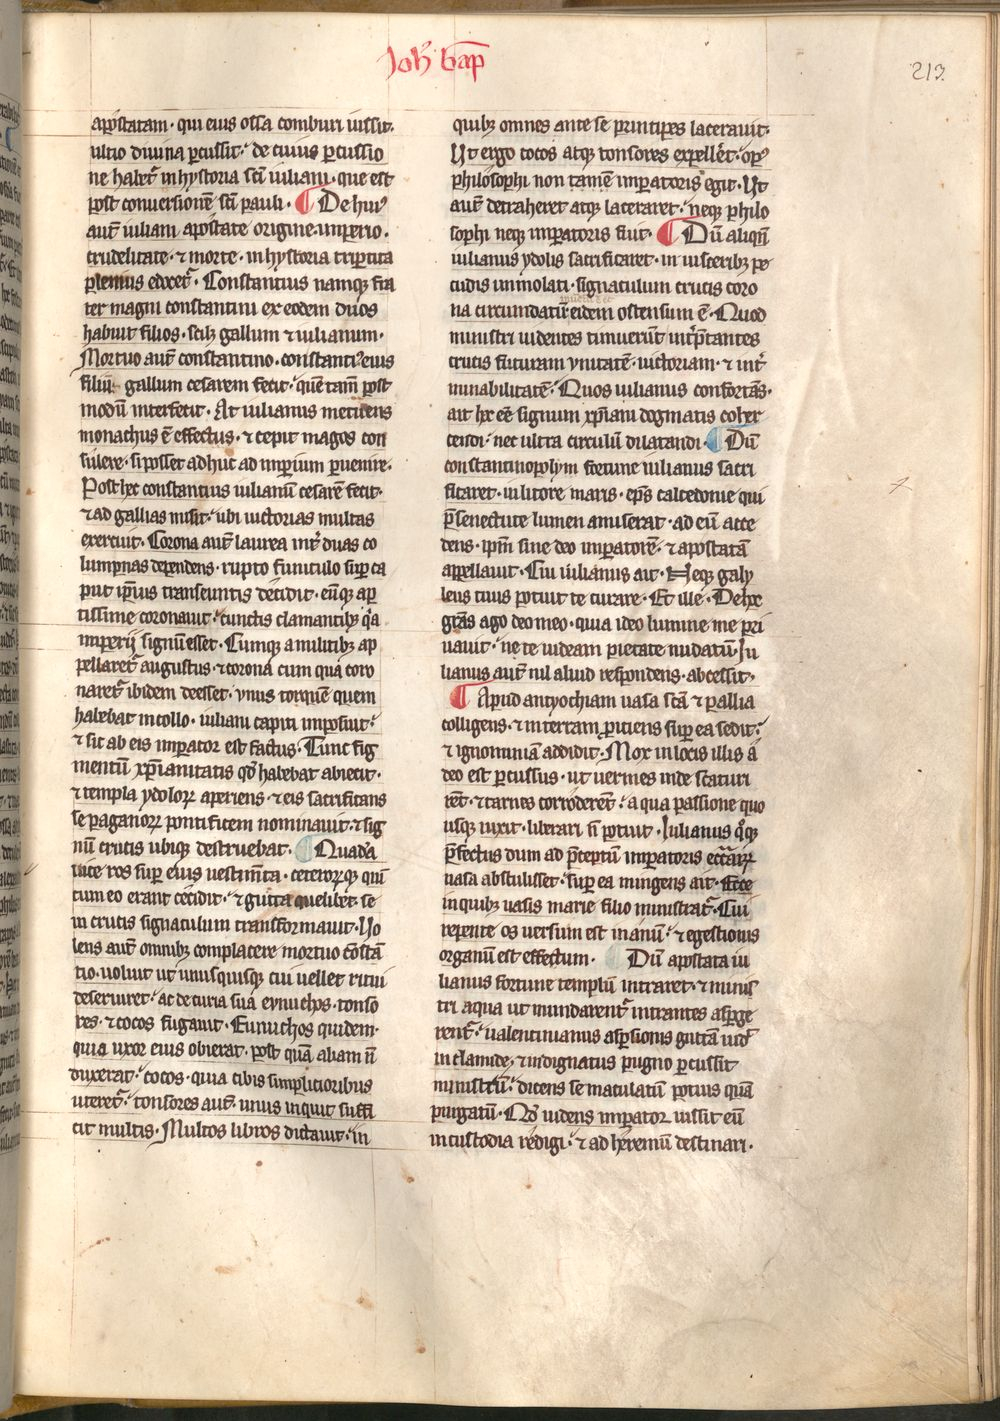 Joh̄ bap̄
213.
apostatam · qui eius ossa comburi iussit·
ultio diuina ꝑcussit · de cuius ꝑcussio
ne habet᷑ in hystoria sc̄i iuliani · que est
post conuersionē sc̄i pauli · ¶ De huiꝰ
aut̄ iuliani apostate origine imperio ·
crudelitate · ⁊ morte · in hystoria tripertita
plenius edocet᷑ · Constantius namqꝫ fra
ter magni constantini ex eodem duos
habuit filios · scilꝫ gallum ⁊ iulianum ·
Mortuo aut̄ constantino · constantiꝰ eius
filiū gallum cesarem fecit · quē tam̄ post
modū interfecit · At iulianus metuens
monachus ē effectus · ⁊ cepit magos con
sulere · si posset adhuc ad imperium ꝑuenire ·
Post hec constantius iulianū cesarē fecit ·
⁊ ad gallias misit · ubi uictorias multas
exercuit · Corona aut̄ laurea int̄ duas co
lumpnas dependens · rupto funiculo suꝑ ca
put ip̄ius transeuntis decidit · eūqꝫ ap
tissime coronauit · cunctis clamantibꝫ qͣa
imperij signū esset · Cumqꝫ a militibꝫ ap
pellaret᷑ augustus · ⁊ corona cum qua coro
naret᷑ ibidem deesset · ynus torquē quem
habebat in collo · iuliani capiti imposuit ·
⁊ sic ab eis imꝑator est factus · Tunc fig
mentū xp̄ianitatis qd̄ habebat abiecit ·
⁊ templa ydoloꝝ aperiens · ⁊ eis sacrificans
se paganoꝝ pontificem nominauit · ⁊ sig
nū crucis ubiqꝫ destruebat · ¶ Quada
uice ros suꝑ eius uestim̄ta · ceteroꝝqꝫ qui
cum eo erant cecidit · ⁊ gutta quelibet se
in crucis signaculum transformauit · Uo
lens aut̄ omnibꝫ complacere mortuo cōstā
tio · uoluit ut unusquisqꝫ cui uellet ritui
deseruiret · ac de curia sua eynuchos · tonso
res · ⁊ cocos fugauit · Eunuchos quidem ·
quia uxor eius obierat · post quā aliam n̄
duxerat · cocos · quia cibis simplicioribus
uteret᷑ · tonsores aut̄ · unus inquit suffi
cit multis · Multos libros dictauit · in
quibꝫ omnes ante se principes lacerauit ·
Ut ergo cocos atqꝫ tonsores expellet · opꝰ
philosophi non tamē imꝑatoris egit · Ut
aut̄ detraheret atqꝫ laceraret · neqꝫ philo
sophi neqꝫ imꝑatoris fuit · ¶ Dū aliqn̄
iulianus ydolis sacrificaret · in uisceribꝫ pe
cudis immolati · signaculum crucis coro
na circumdatū eidem ostensum ē · Quod
ministri uidentes timuerūt int̄p̄tantes
crucis futuram ynitatē · uictoriam · ⁊ int̄
minabilitatē · Quos iulianus confortās ·
ait hec eē signum xp̄iani dogmatis coher
cendi · nec ultra circulū dilatandi · ¶ Dū
constantinopolym fortune iulianus sacri
ficaret · in litore maris · ep̄s calcedonie qui
p̄ senectute lumen amiserat · ad eū acce
dens · ip̄m sine deo imꝑatorē · ⁊ apostatā
appellauit · Cui iulianus ait · Neqꝫ galy
leus tuus potuit te curare · Et ille · De hec
gr̄as ago deo meo · quia ideo lumine me pri
uauit · ne te uideam pietate nudatū · Iu
lianus aut̄ nil aliud respondens · abcessit ·
¶ Apud antyochiam uasa sc̄a ⁊ pallia
colligens · ⁊ in terram ꝓiciens suꝑ ea sedit ·
⁊ ignominiā addidit · Mox in locis illis a
deo est ꝑcussus · ut uermes inde scaturi
rēt · ⁊ carnes corroderēt · a qua passione quo
usqꝫ uixit · liberari n̄ potuit · Iulianus qͦqꝫ
p̄fectus dum ad p̄ceptū imꝑatoris ecc̄iaꝝ
uasa abstulisset · suꝑ ea mingens ait · Ecce
in quibꝫ uasis marie filio ministrat᷑ · Cui
repente os uersum est in anū · ⁊ egestionis
organū est effectum · ¶ Dū apostata iu
lianus fortune templū intraret · ⁊ minis
tri aqua ut mundarent᷑ intrantes asꝑge
rent᷑ · ualentinianus asꝑsionis guttā uidꝫ
in clamide · ⁊ indignatus pugno ꝑcussit
ministrū · dicens se maculatū potius quā
purgatū · Qd̄ uidens imꝑator iussit eū
in custodia redigi · ⁊ ad heremū destinari ·